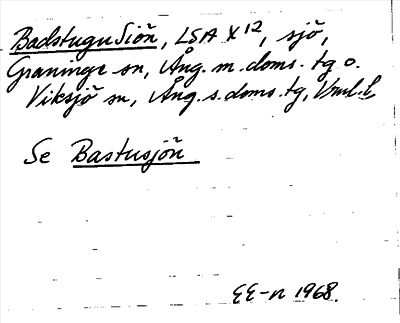 Badstugu Siön, LSA X 12, sjö,
Graninge sn, Ång. m. doms. tg o.
Viksjö sn, Ång. s. doms. tg, Vnl. l.
Se Bastusjön
EE-n 1968.